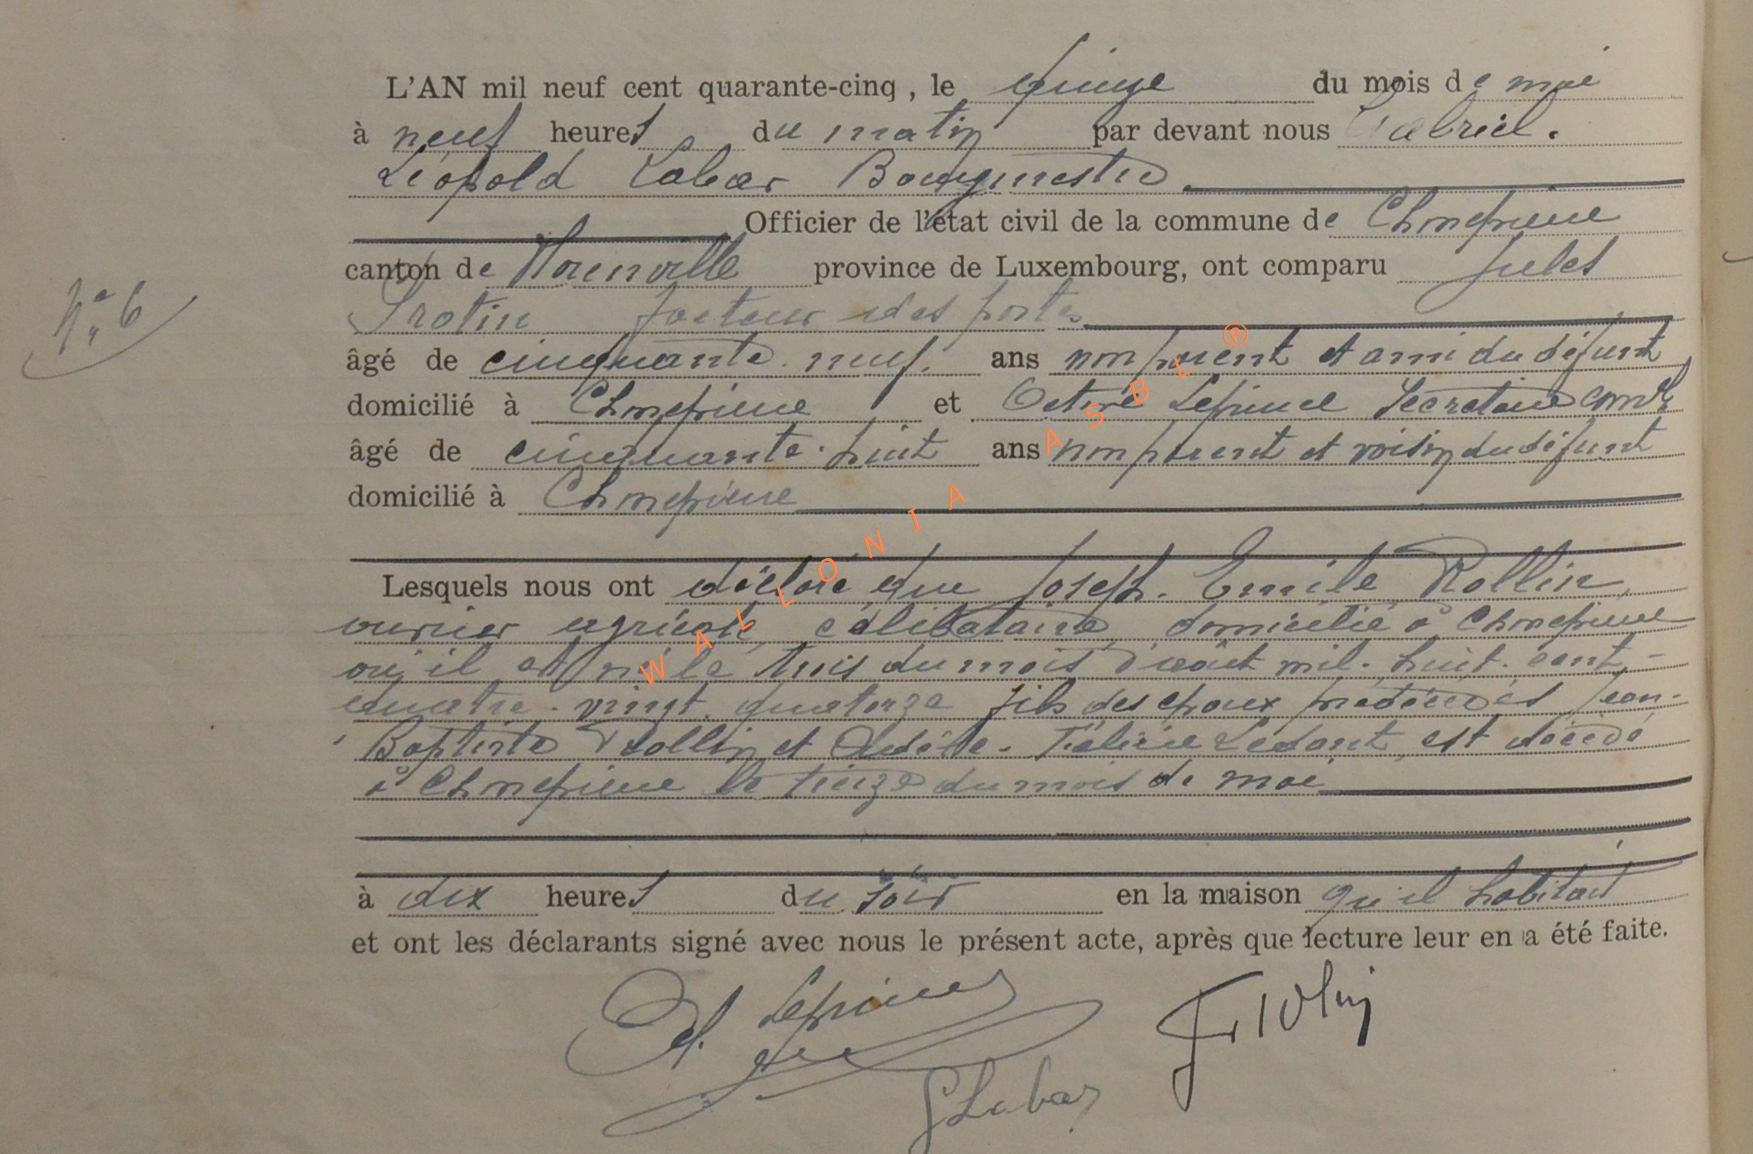 L'AN mil neuf cent quarante-cinq, le quinze du mois de mai
à neuf heures du matin par devant nous Gabriel.
Léopold Labar Bourgmestre
Officier de l'état civil de la commune de
canton de province de Luxembourg, ont comparu Jules
facteur des postes
âgé de cinquante-neuf. ans non parent et ami du défunt
domicilié à et Octave Lepince Secrétaire
âgé de cinquante-huit ans non parent et voisin du défunt
domicilié à
Nº 6
Lesquels nous ont déclaré que Joseph. Emile Rollin,
ouvrier agricole, célibataire, domicilié à
où il est né le trois du mois d'août mil-huit-cent-
quatre-vingt-quatorze fils des époux prédécédés Jean-
Baptiste Rollin et est décédé
à le treize du mois de mai
à dix heures du soir en la maison qu'il habitait
et ont les déclarants signé avec nous le présent acte, après que lecture leur en a été faite.
GLabar
WALLONIA ASBL ®